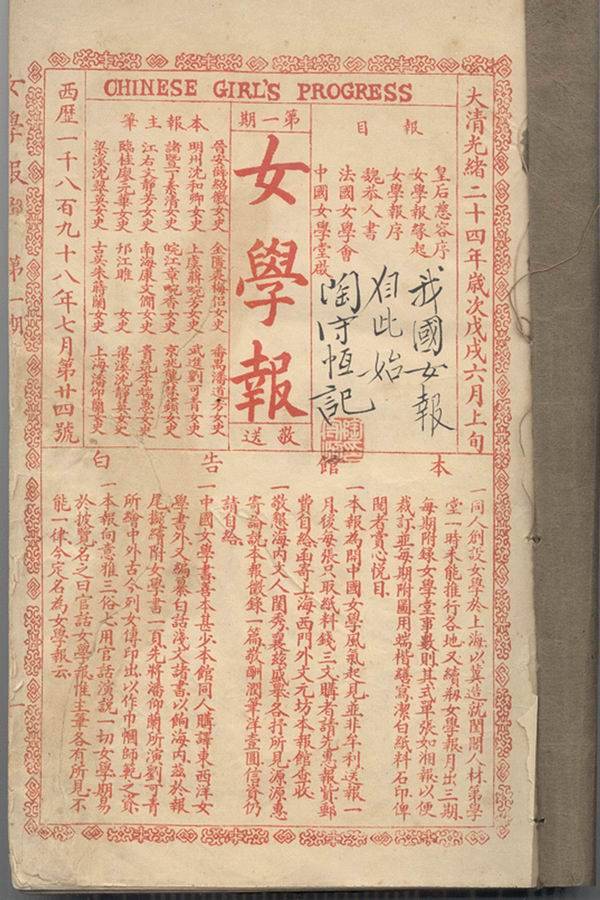 CHINESE GIRL'S PROGRESS
大清光緒二十四年歲次戊戌六月上旬
報目
皇后懿容序
女學報緣起
女學報序
魏恭人書
法國女學會
中國女學堂啟
我國女報
自此始
陶守恆記
第一期
女學報
敬送
本報主筆
晉安薛紹徽女史 金匱裘梅侶女史 番禺潘道芳女史
明州沈和卿女史 上虞蔣畹芳女史 武進劉可青女史
諸暨丁素清女史 皖江章畹香女史 京兆龔慧蘋女史
江右文靜芳女史 南海康文僩女史 貴筑李端蕙女史
臨桂廖元華女史 邗江睢 女史 梁溪沈靜英女史
梁溪沈翠英女史 古吳朱蒔蘭女史 上海潘仰蘭女史
西歷一千八百九十八年七月第廿四號
本館告白
一同人創設女學於上海以冀造就閨閣人材第學
堂一時未能推行各地又續刱女學報月出三期
每期附錄女學堂事數則其式單張如湘報以便
裁訂並每期附圖用端楷繕寫潔白紙料石印俾
閱者賞心悅目
一本報為開中國女學風氣起見並非牟利送報一
月後每張只取紙料錢三文購者請先惠報貲郵
費自給函寄上海西門外文元坊本報館查收
一敬懇海內大人閨秀襄茲盛舉各抒所見源源惠
寄論說本報徵錄一篇敬酬潤筆洋壹圓信資仍
請自給
一中國女學書善本甚少本館同人購譯東西洋女
學書外又編纂白話淺文諸書以餉海內茲於報
尾擬續附女學書一頁先將潘仰蘭所演劉可青
所繪中外古今列女傳印出以作巾幗師範之資
一本報向意雅三俗七用官話演說一切女學期易
於披覽名之曰官話女學報惟主筆各有所見不
能一律今定名為女學報云
女學報 第一期